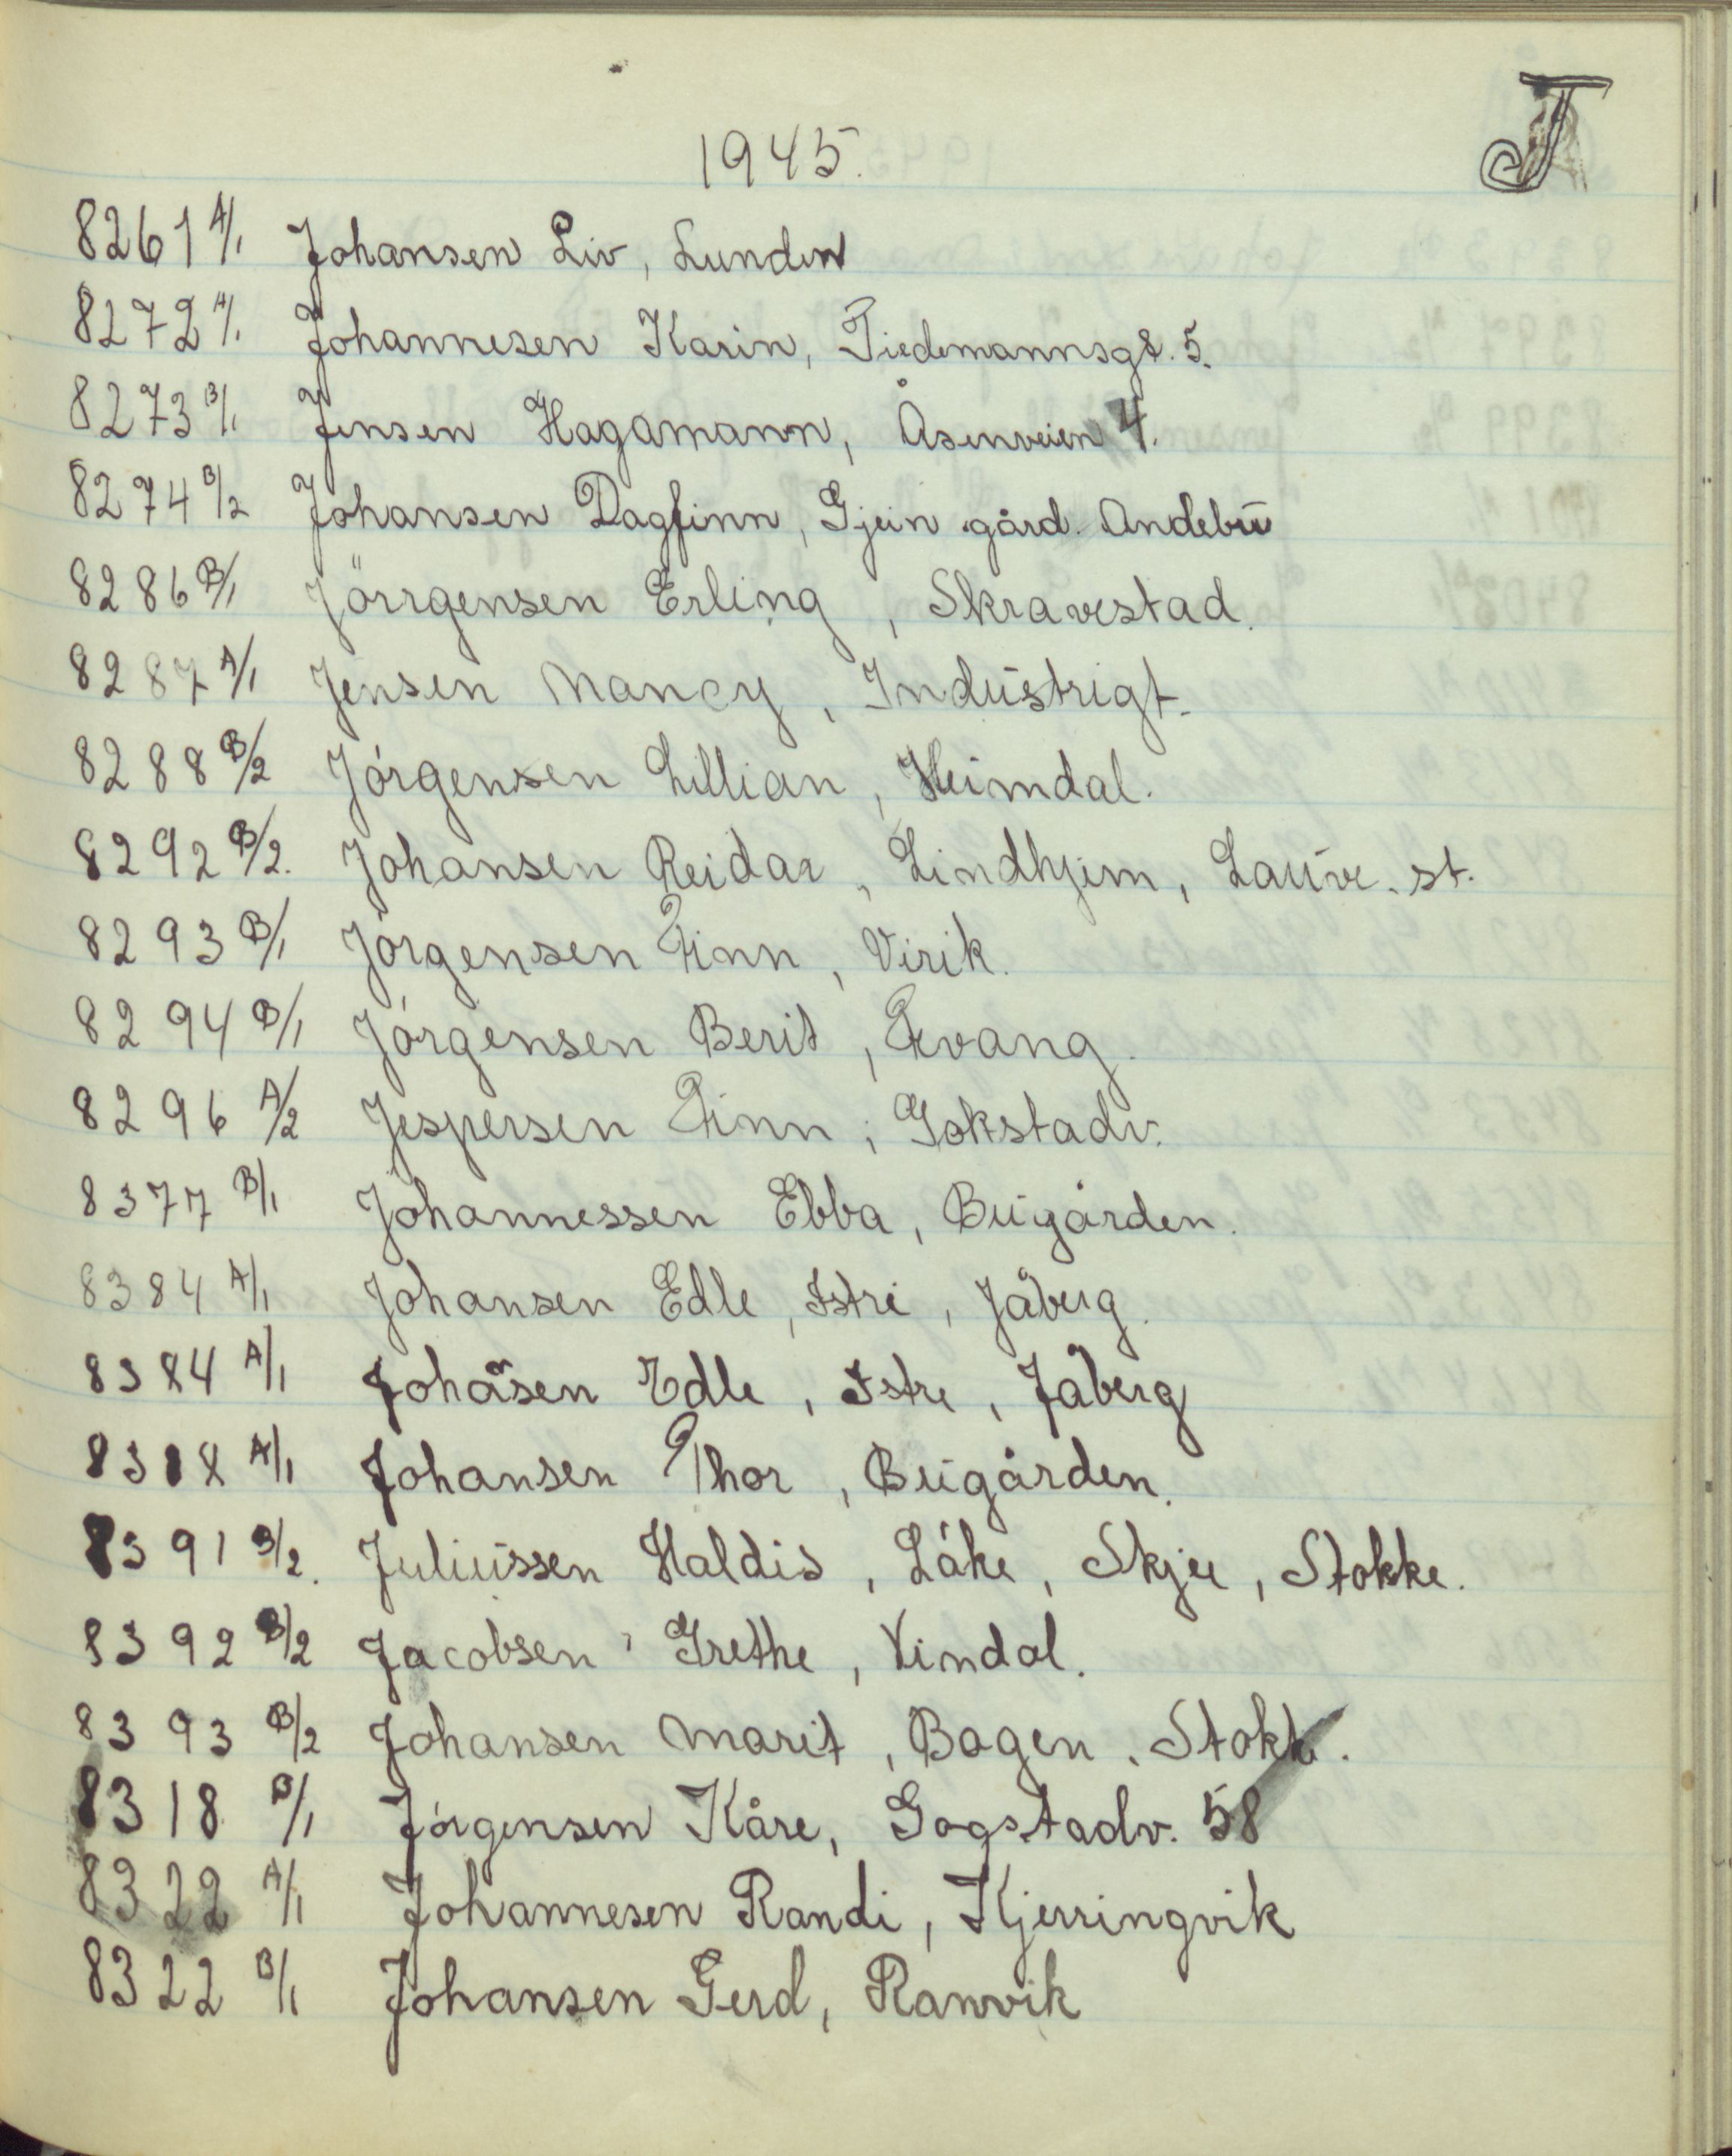 J
1945.
8261 A/1 Johansen Liv, Lunden
8272 A/1. Johannesen Karin, Tiedemannsgt. 5.
8273 B/1 Jensen Hagamann, Åsenveien 4.
8274 B/2 Johansen Dagfinn, Gjein gård. Andebu
8286 B/1 Jörrgensen Erling, Skravestad.
8287 A/1 Jensen Nancy, Industrigt.
8288 B/2 Jórgensen Lillian, Heimdal.
8292 B/2. Johansen Reidar, Lindhjem, Lauve. st.
8293 B/1 Jórgensen Finn, Virik.
8294 B/1 Jórgensen Berit, Kvang.
8296 A/2 Jespersen Finn, Gokstadv.
8377 B/1 Johannessen Ebba, Bugården.
8384 A/1 Johansen Edle, Istre, Jåberg.
8384 A/1 Johansen Edle, Istre, Jåberg
8388 A/1 Johansen Thor, Bugården.
8391 B/2. Juliussen Haldis, Låke, Skjee, Stokke.
8392 B/2 Jacobsen Grethe, Vindal.
8393 B/2 Johansen Marit, Bogen, Stokke.
8318 B/1 Jórgensen Kåre, Gogstadv. 58
8322 A/1 Johannesen Randi, Kjerringvik
8322 B/1 Johansen Gerd, Ranvik